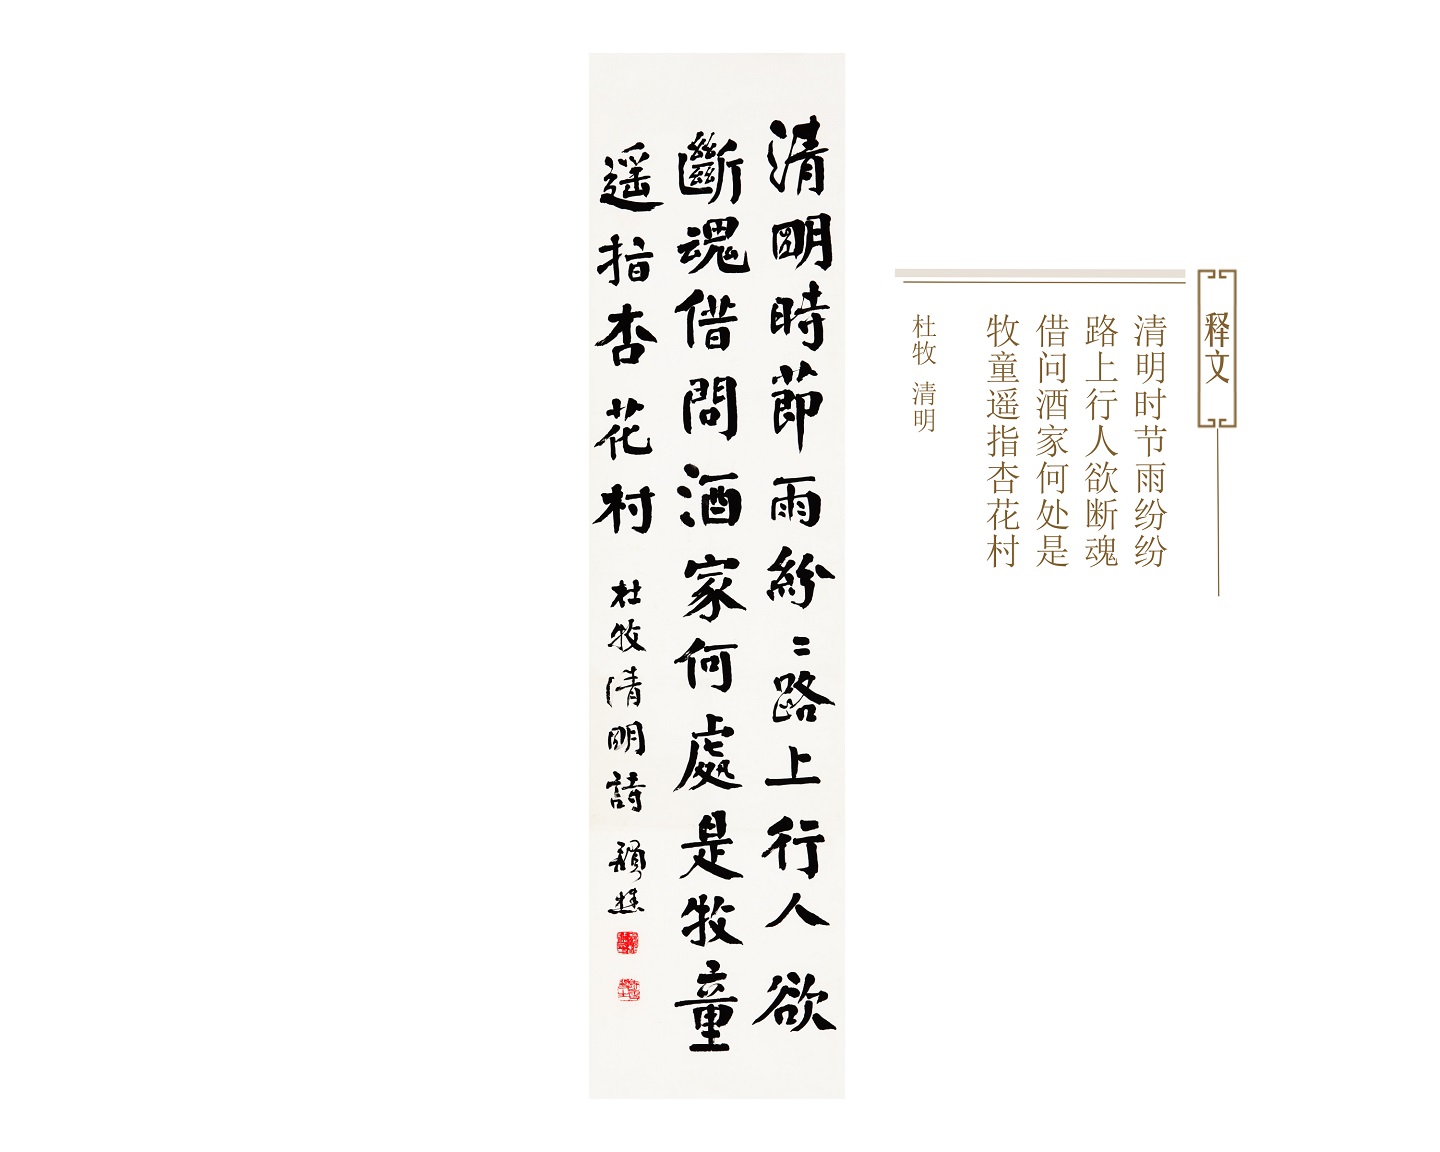 释文
清明时节雨纷纷
路上行人欲断魂
借问酒家何处是
牧童遥指杏花村
杜牧 清明
清明時節雨紛〻路上行人欲
斷魂借問酒家何處是牧童
遥指杏花村 杜牧清明詩